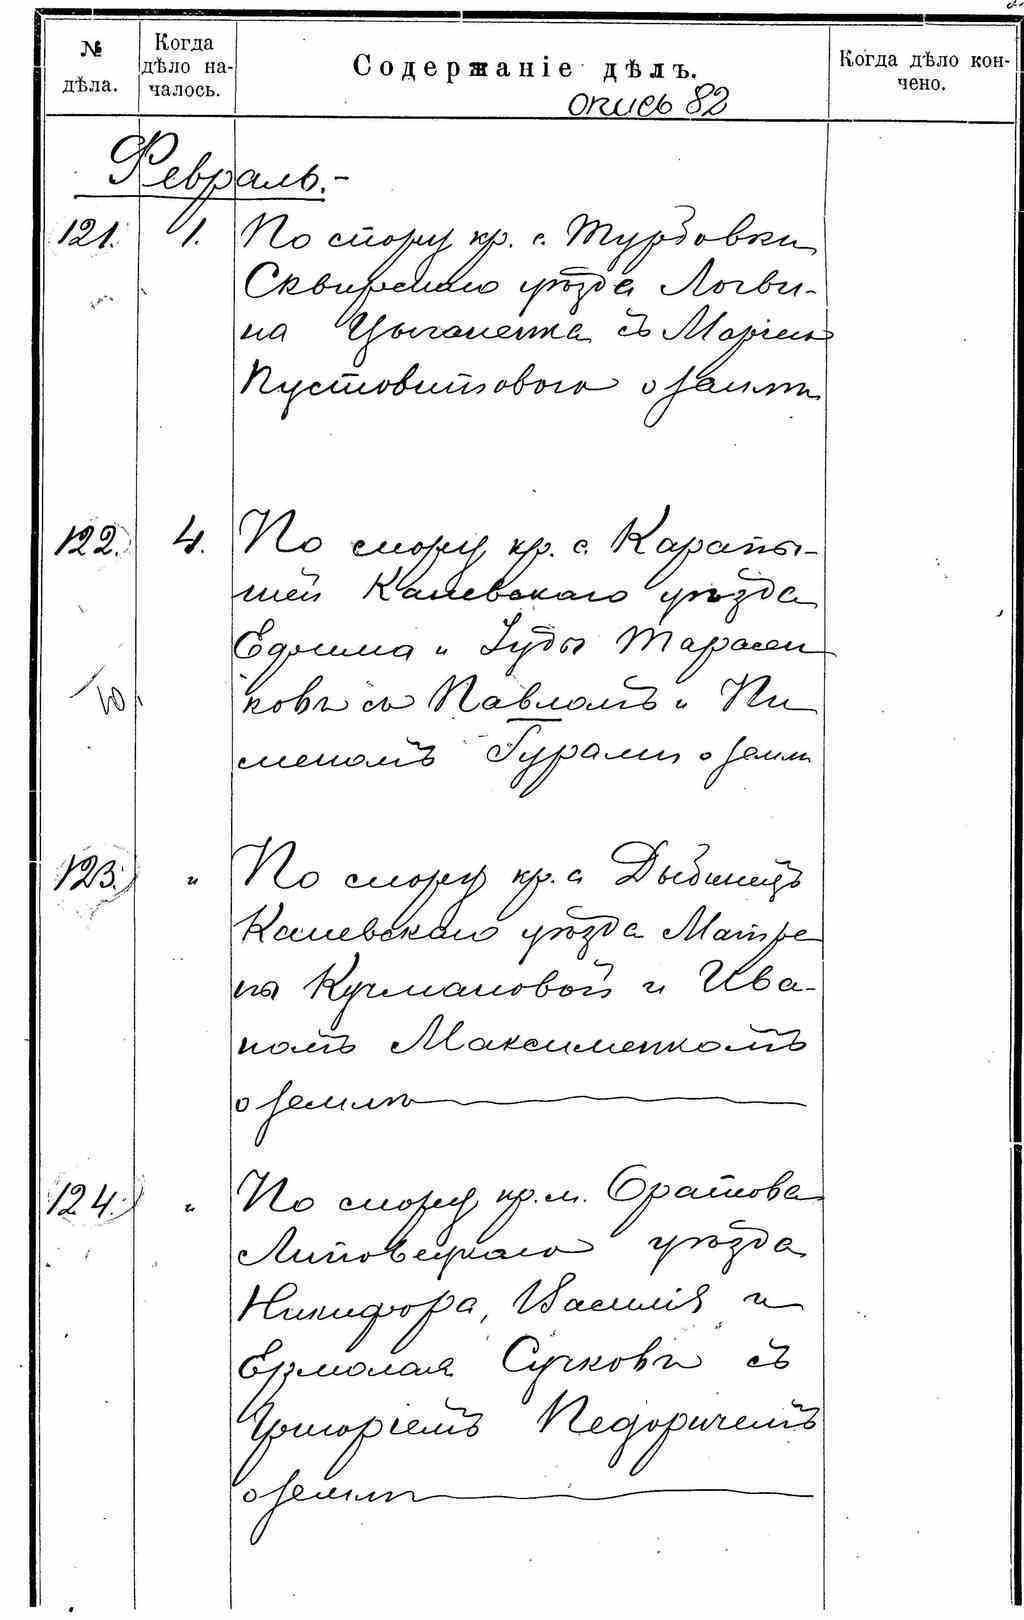 № дѣла.
Когда дѣло началось.
Содержаніе дѣлъ.
Когда дѣло кончено.
опись 82
Февраль.-
121. 1. По спору кр. с. Турбовки
Сквирскаго уѣзда Логви-
на Цыганенка съ Маріею
Пустовитовою о землѣ
122. 4. По спору кр. с. Карапы-
шей Каневскаго уѣзда
Ефима и Іуды Тарасен
ковъ съ Павломъ и Пи
меномъ Гурами о землѣ
10
123. " По спору кр. с. Дыбинецъ
Каневскаго уѣзда Матре
ны Кучмановой и Ива-
номъ Максименкомъ
о землѣ
124. " По спору кр. м. Оратова
Липовецкаго уѣзда
Никифора, Василія и
Ермолая Сучковъ съ
Григоріемъ
о землѣ